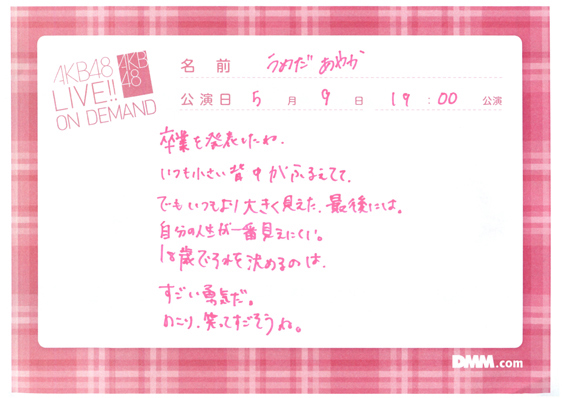 AKB48
LIVE!!
ON DEMAND
AKB
48
名 前 うめだ あやか
公演日 5 月 9 日 19:00 公演
卒業を発表したね。
いつも小さい背中がふるえてて、
でもいつもより大きく見えた、最後には。
自分の人生が一番見えにくい。
18歳でそれを決めるのは、
すごい勇気だ。
のこり、笑ってすごそうね。
DMM.com